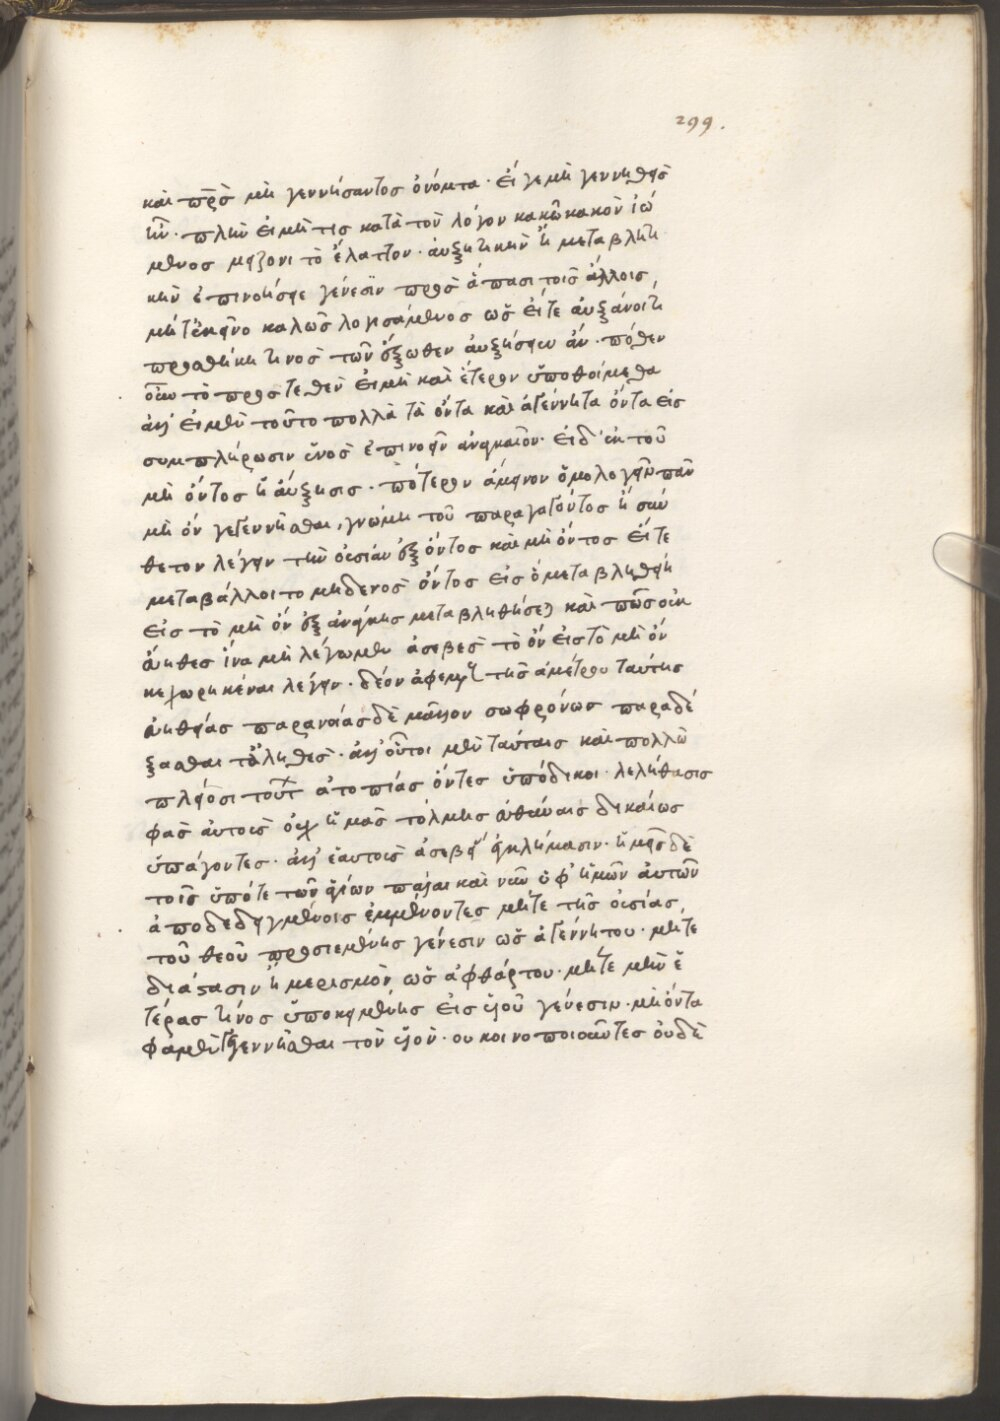 299.
καὶ πρ̅σ̅ μὴ γεννήσαντος ὀνόματα· εἴ γε μὴ γεννηθεὶς
ἦν· πλὴν εἰ μή τις κατὰ τὸν λόγον κακῷ κακὸν ἰώ
μενος μείζονι τὸ ἔλαττον· αὐξητικὴν ἢ μεταβλητι
κὴν ἐπινοήσειε γένεσιν πρὸς ἅπασι τοῖς ἄλλοις,
μήτ' ἐκεῖνο καλῶς λογισάμενος ὡς εἴτε αὐξάνοιτο
προσθήκῃ τινὸς τῶν ἔξωθεν αὐξήσειεν ἄν· πόθεν
οὖν τὸ προστεθὲν εἰ μὴ καὶ ἕτερον ὑποθοίμεθα
ἀλλ' εἰ μὲν τοῦτο πολλὰ τὰ ὄντα καὶ ἀγέννητα ὄντα εἰς
συμπλήρωσιν ἑνὸς ἐπινοεῖν ἀναγκαῖον· εἰ δ' ἐκ τοῦ
μὴ ὄντος ἡ αὔξησις· πότερον ἄμεινον ὁμολογεῖν πᾶν
μὴ ὂν γεγεννῆσθαι, γνώμῃ τοῦ παραγαγόντος ἢ σύν
θετον λέγειν τὴν οὐσίαν ἐξ ὄντος καὶ μὴ ὄντος εἴτε
μεταβάλλοιτο μηδενὸς ὄντος εἰς ὃ μεταβληθείη
εἰς τὸ μὴ ὂν ἐξ ἀνάγκης μεταβληθήσεται καὶ πῶς οὐκ
εὔηθες ἵνα μὴ λέγωμεν ἀσεβὲς τὸ ὂν εἰς τὸ μὴ ὂν
κεχωρηκέναι λέγειν· δέον ἀφεμένους τῆς ἀμέτρου ταύτης
εὐηθείας παρανοίας δὲ μᾶλλον σωφρόνως παραδέ
ξασθαι τἀληθές· ἀλλ' οὗτοι μὲν ταύταις καὶ πολλῷ
πλείοσι τούτων ἀτοπίας ὄντες ὑπόδικοι· λελήθασι
σφᾶς αὐτοὺς οὐχ ἡμᾶς τόλμης εὐθύναις δικαίως
ὑπάγοντες· ἀλλ' ἑαυτοὺς ἀσεβείας ἐγκλήμασιν· ἡμεῖς δὲ
τοῖς ὑπό τε τῶν ἁγίων πάλαι καὶ νῦν ὑφ' ἡμῶν αὐτῶν
ἀποδεδειγμένοις ἐμμένοντες μήτε τῆς οὐσίας,
τοῦ θεοῦ προσιεμένης γένεσιν ὡς ἀγεννήτου· μήτε
διάστασιν ἢ μερισμὸν ὡς ἀφθάρτου· μήτε μὴν ἑ
τέρας τινὸς ὑποκειμένης εἰς υἱοῦ γένεσιν· μὴ ὄντα
φαμὲν γεγεννῆσθαι τὸν υἱόν· οὐ κοινοποιοῦντες οὐδὲ